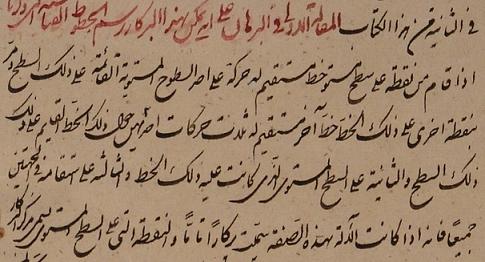 في الثانية من هذا الكتاب المقالة الاولى في البرهان على انه يمكن بهذا البركار رسم الخطوط
اذا قام من نقطة على سطح مستو خط مستقيم له حركة على احد السطوح المستوية القائمة على ذلك السطح
بنقطة اخرى على ذلك الخط خط آخر مستقيم له ثلث حركات احديهن حول ذلك الخط القايم على ذلك
ذلك السطح والثانية على السطح المستوى الذى كانت عليه ذلك الخط والثالثة على استقامة فى الجهتين
جميعًا فانه اذا كانت الآلة بهذه الصفة سميت بركارًا تامًا والنقطة التى على السطح المستوى يسمى مركز